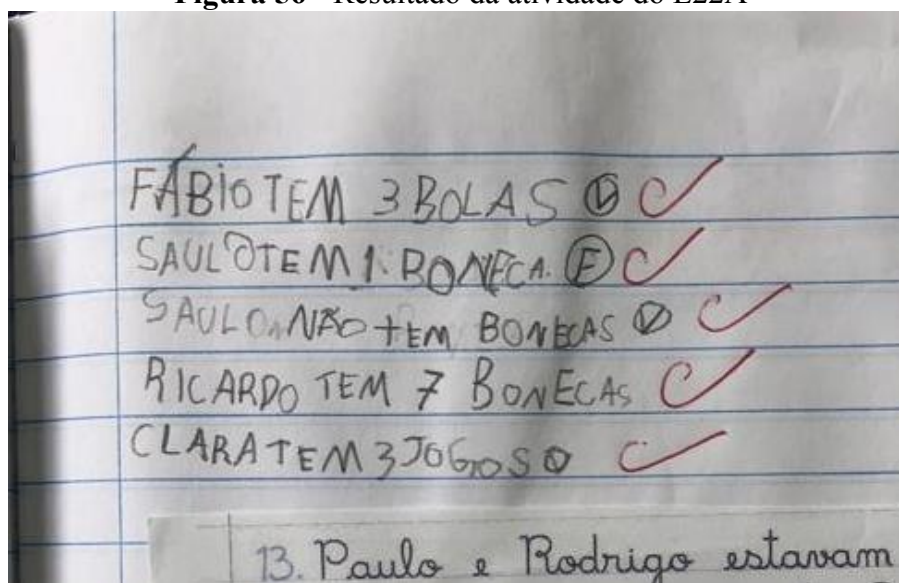 Figura 30 - Resultado da atividade do E22A
FÁBIO TEM 3 BOLAS V
SAULO TEM 1 BONECA. F
SAULO NÃO TEM BONECAS V
RICARDO TEM 7 BONECAS
CLARA TEM 3 JOGOS
13. Paulo e Rodrigo estavam